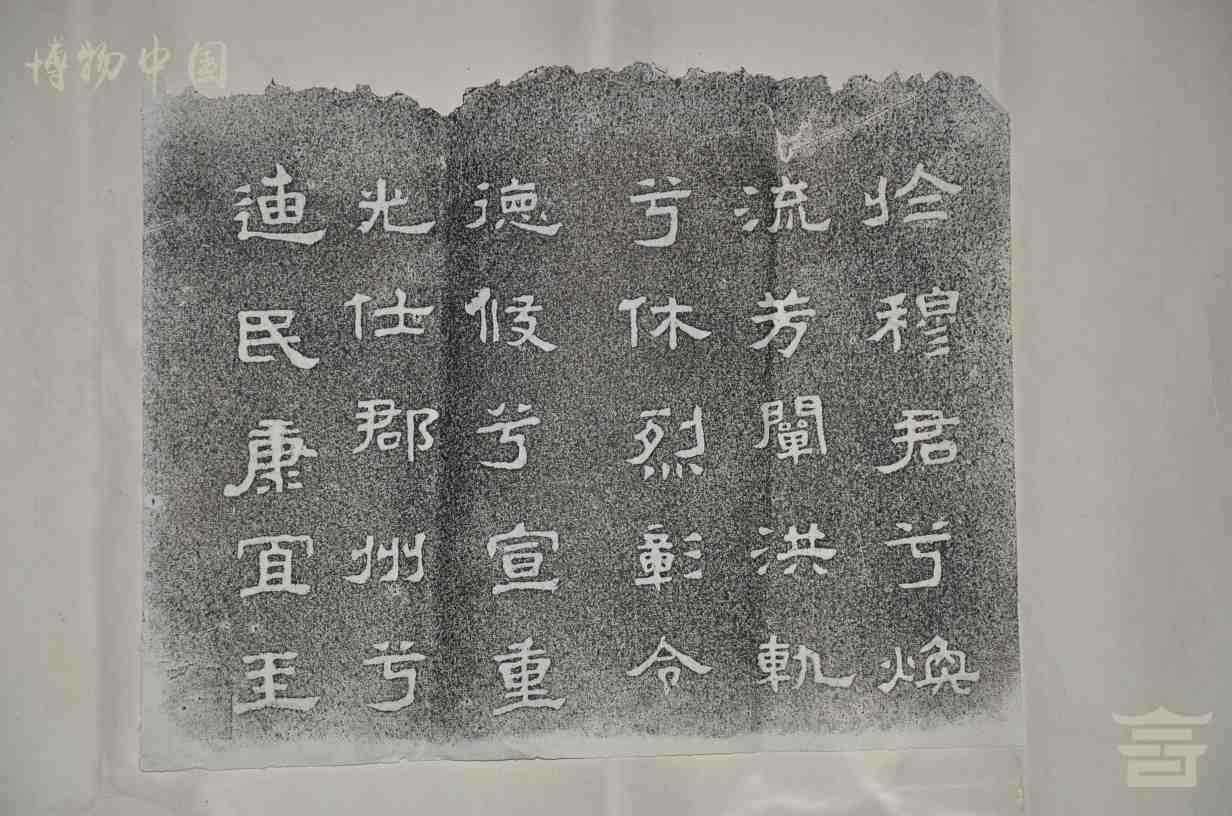 博物中国
於穆君兮煥
流芳闡洪軌
兮休烈彰令
德兮宣重
光仕郡州兮
迪民康冝王